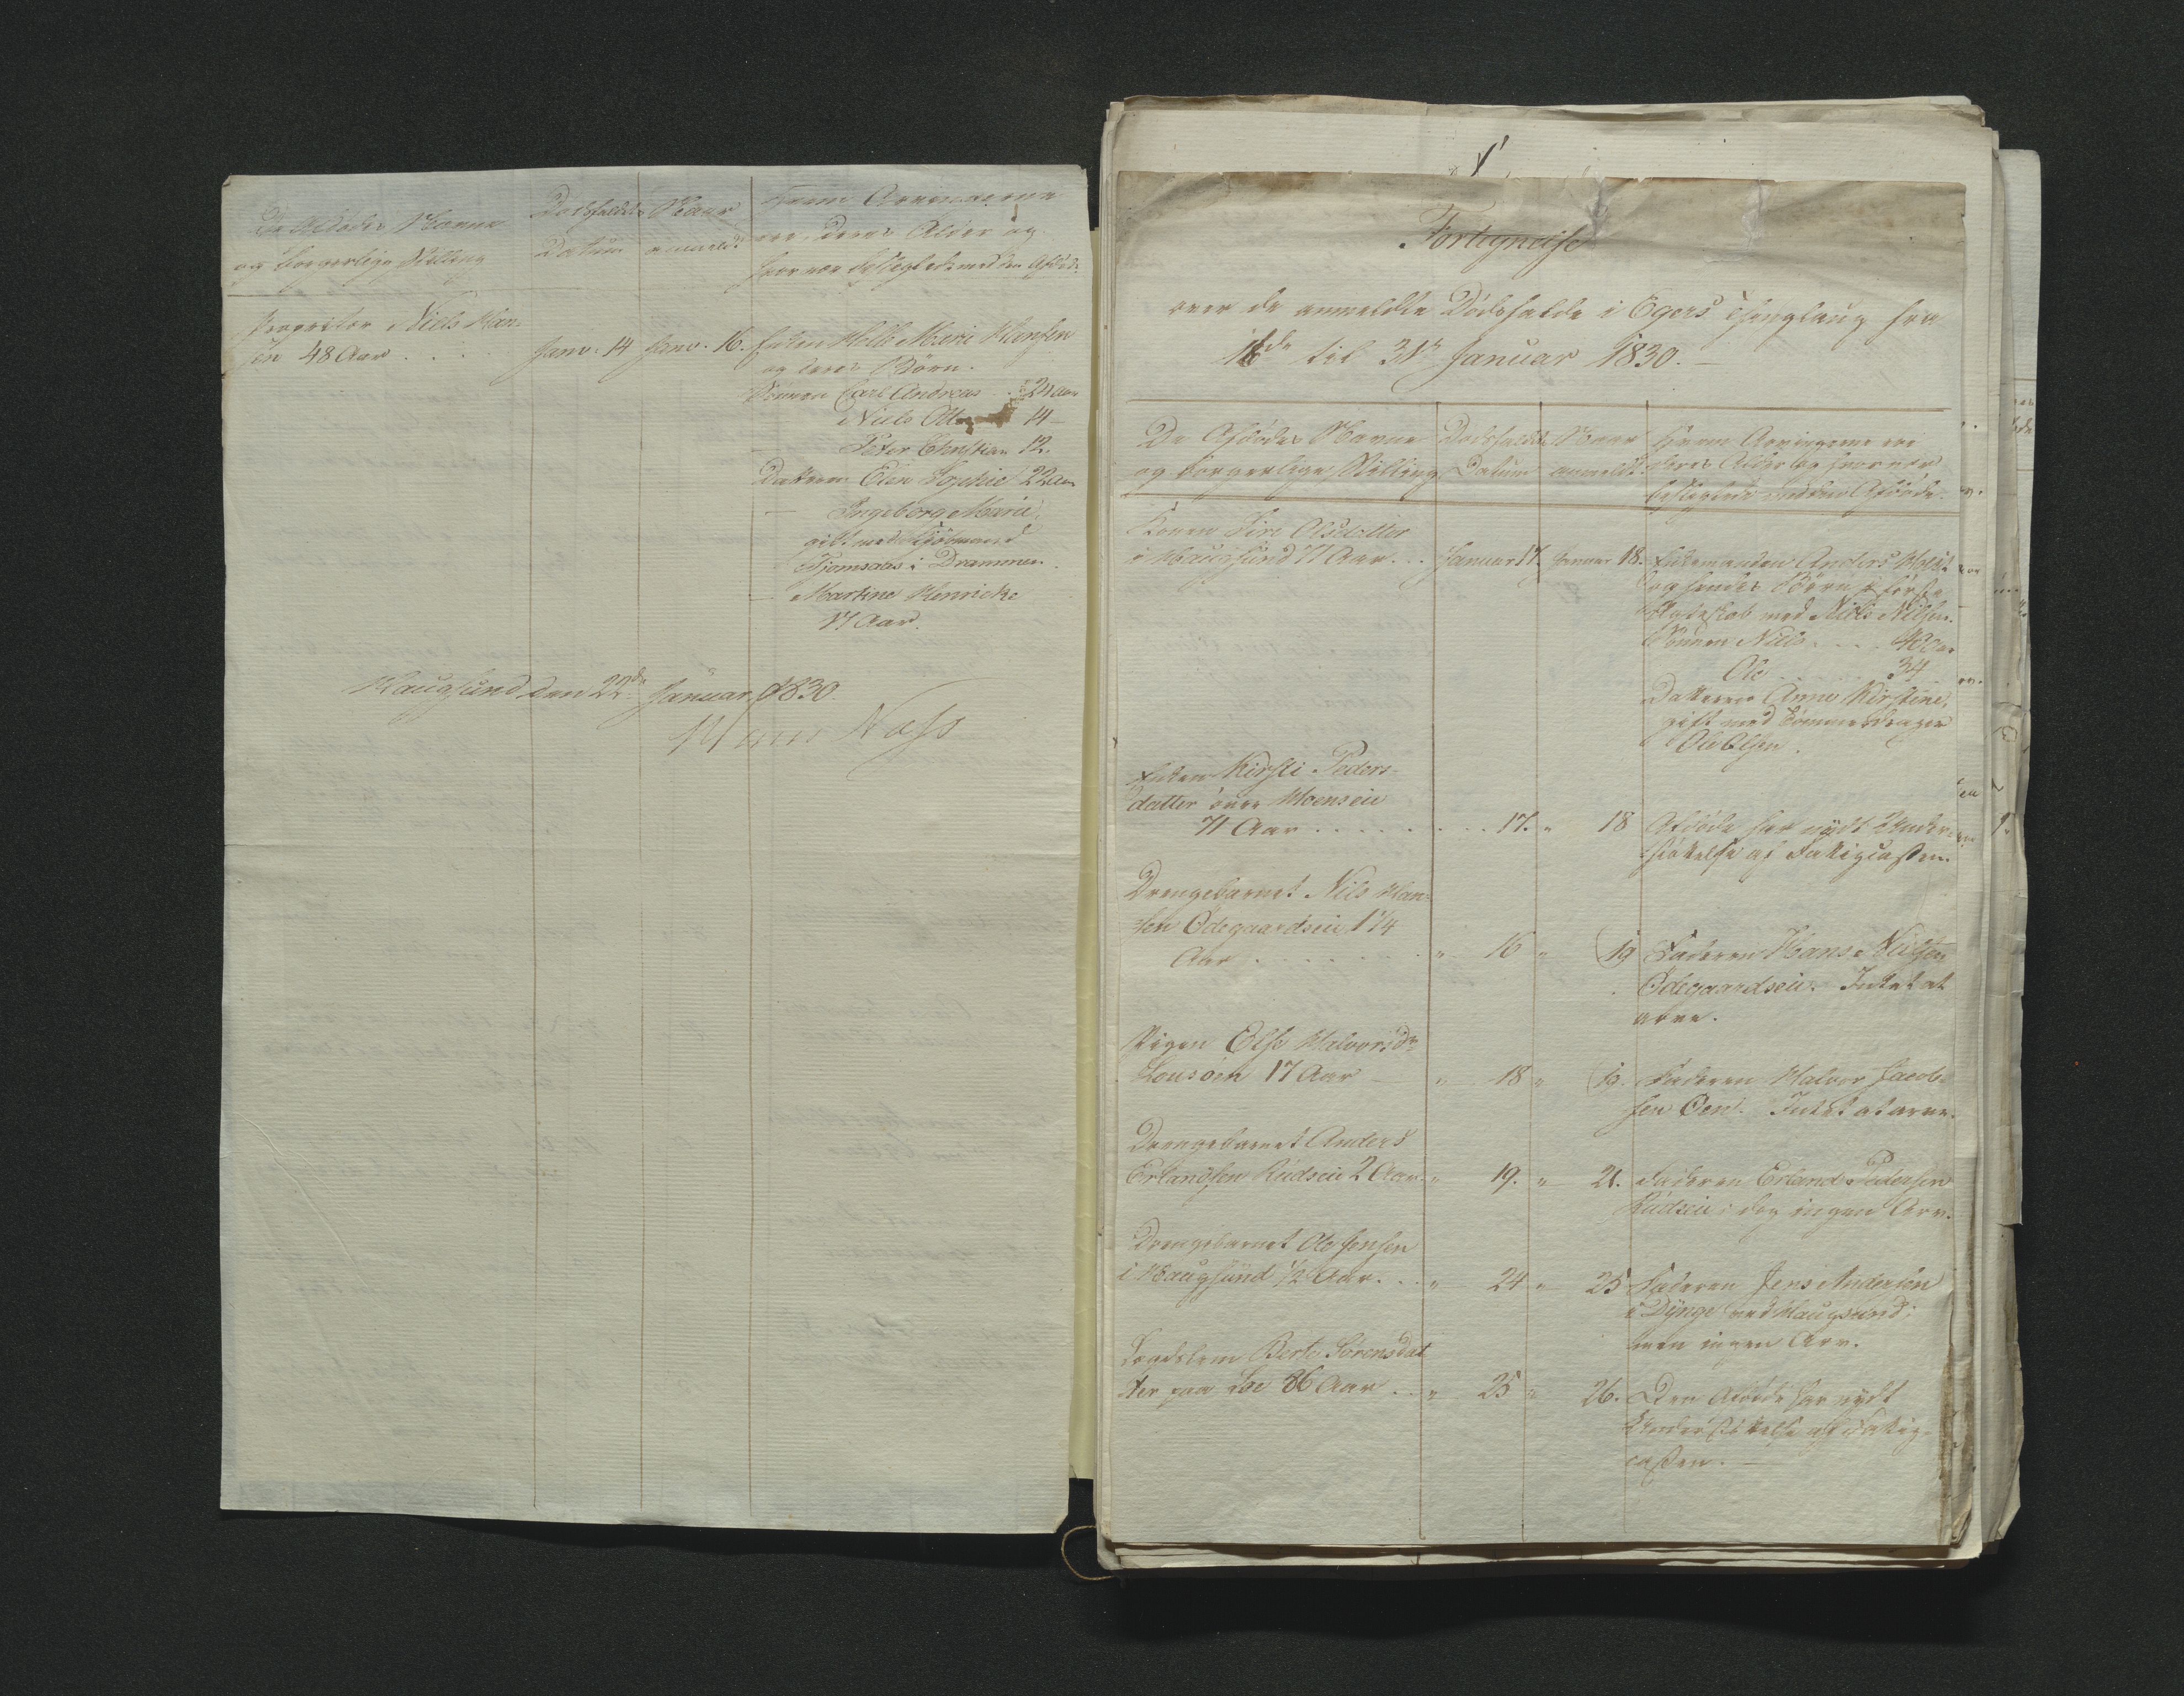 De Afdødes Navne
og borgerlige Stilling
Dødsfaldets
Datum
Naar
anmeldt
Hvem Arvingerne
ere, deres Alder og
hvor nær beslægtede med den Afdøde.
Proprietør Niels Han-
sen 48 Aar . . . .
Janv. 14
Janv. 16.
Enken Helle Marie Hansen
og deres Børn.
Sønnen Carl Andreas . . 24 Aar
Niels Otto 14 -
- Peter Christian 12.
Datteren Elen Sophie 22 Aar
- Ingeborg Marie,
gift med
Tjomsaas i Drammen.
- Martine Henricke
17 Aar.
Haugsund den 22de Januar 1830.
Hans Nass
Fortegnelse
over de anmeldte Dødsfalde i Egers Thinglaug fra
16de til 31te Januar 1830. -
De Afdødes Navne
og borgerlige Stilling
Dødsfaldets
Datum
Naar
anmeldt
Hvem Arvingerne ere
deres Alder og hvor nær
beslægtede med den Afdøde.
Konen Siri Olsdatter
i Haugsund 71 Aar. . .
Januar 17.
Januar 18.
Enkemanden Anders
og hendes Børn i første
Ægteskab med Niels Nilsen.
Sønnen Niels . . . . 40 Aar
Ole . . . . . 34
Datteren Anne Kirstine,
gift med Tømmerdrager
Ole Olsen.
Enken Kirsti Peders-
datter øvre Hoenseie
71 Aar . . . . . . . . 17. " 18
Afdøde har nydt Under-
støttelse af Fattigcassen.
Drengebarnet Nils Han-
sen Ødegaardseie 1 1/4
Aar . . . . . . . " 16 " 19
Faderen Hans Nilsen
Ødegaardseie. Intet at
arve.
Pigen Else Halvorsdr
Lousøen 17 Aar - " 18 " 19.
Faderen Halvor Jacob-
sen Øen. Intet at arve.
Drengebarnet Anders
Erlandsen Rudseie 2 Aar. " 19. " 21.
Faderen Erland Pedersen
Rudseie; dog ingen Arv.
Drengebarnet Ole Jensen
i Haugsund 1/2 Aar. . . " 24 " 25
Faderen Jens Andersen
i Dynge ved Haugsund;
men ingen Arv.
Lægdslem Berte Sørensdat
ter paa Loe 86 Aar . . " 25 " 26.
Den Afdøde har nydt
Understøttelse af Fattig
cassen. -